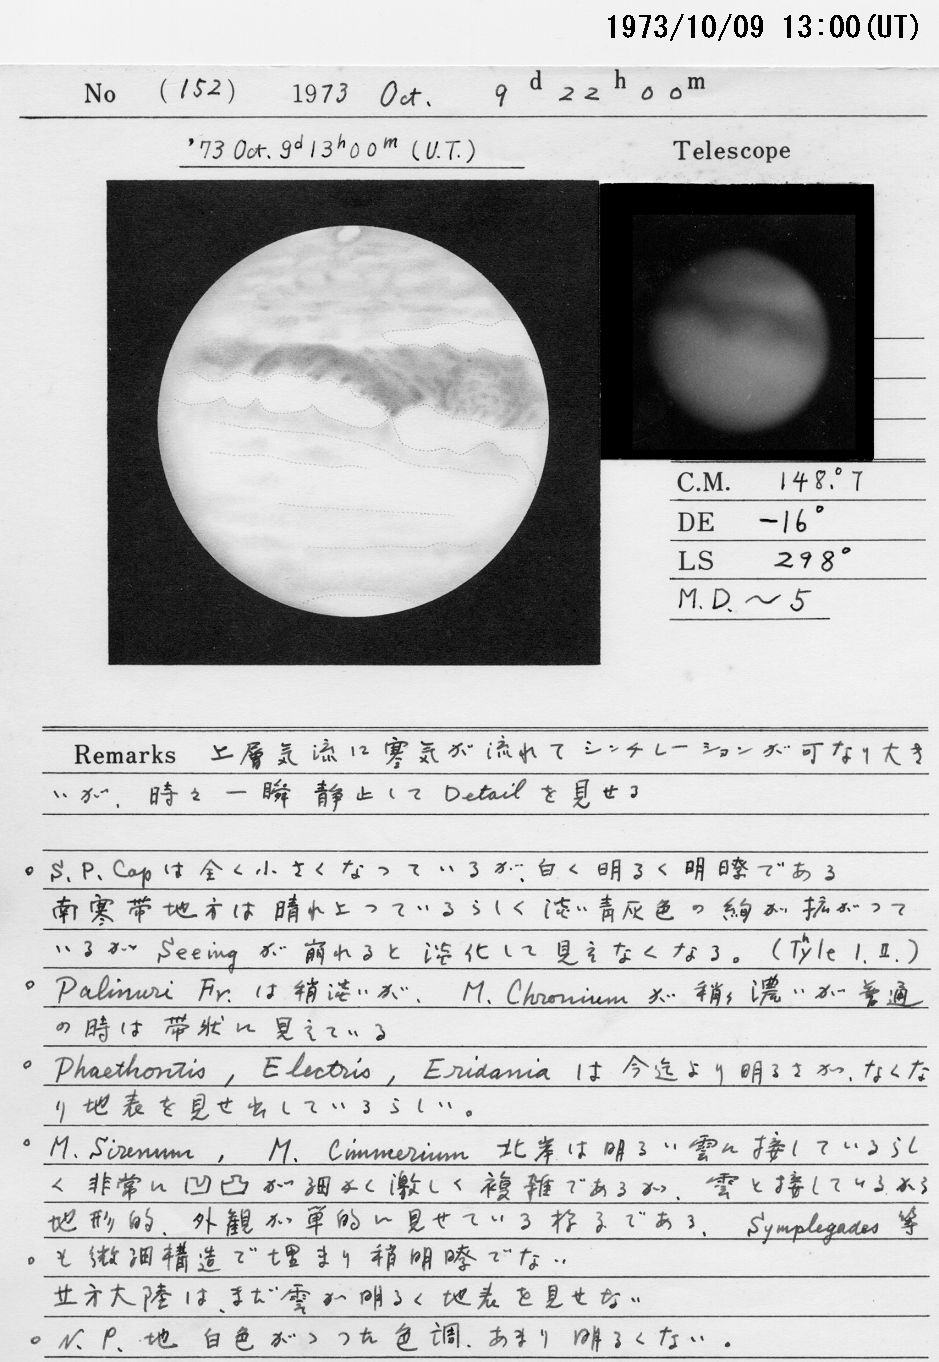 1973/10/09 13:00(UT)
No (152) 1973 Oct. 9 d 22 h 00 m
'73 Oct. 9d 13h 00m (U.T.)
Telescope
C.M. 148.°7
DE -16°
LS 298°
M.D. ~ 5
Remarks 上層気流に寒気が流れてシンチレーションが可なり大き
いが、時々一瞬静止してDetailを見せる
S.P. Capは全く小さくなっているが、白く明るく明瞭である
南寒帯地方は晴れ上っているらしく淡い青灰色の絢が拡がって
いるがSeeingが崩れると淡化して見えなくなる。(Thyle I. II.)
Palinuri Fr. は稍淡いが、M. Chroniumが稍々濃いが普通
の時は帯状に見えている
Phaethontis, Electris, Eridaniaは今迄より明るさが、なくな
り地表を見せ出しているらしい。
M. Sirenum, M. Cimmerium 北岸は明るい雲に接しているらし
く非常に凹凸が細かく激しく複雑であるが、雲と接している
地形的、外観が単的に見せている様である、Symplegades等
も微細構造で埋まり稍明瞭でない
北方大陸は、まだ雲が明るく地表を見せない
N.P. 地 白色がかった色調、あまり明るくない。